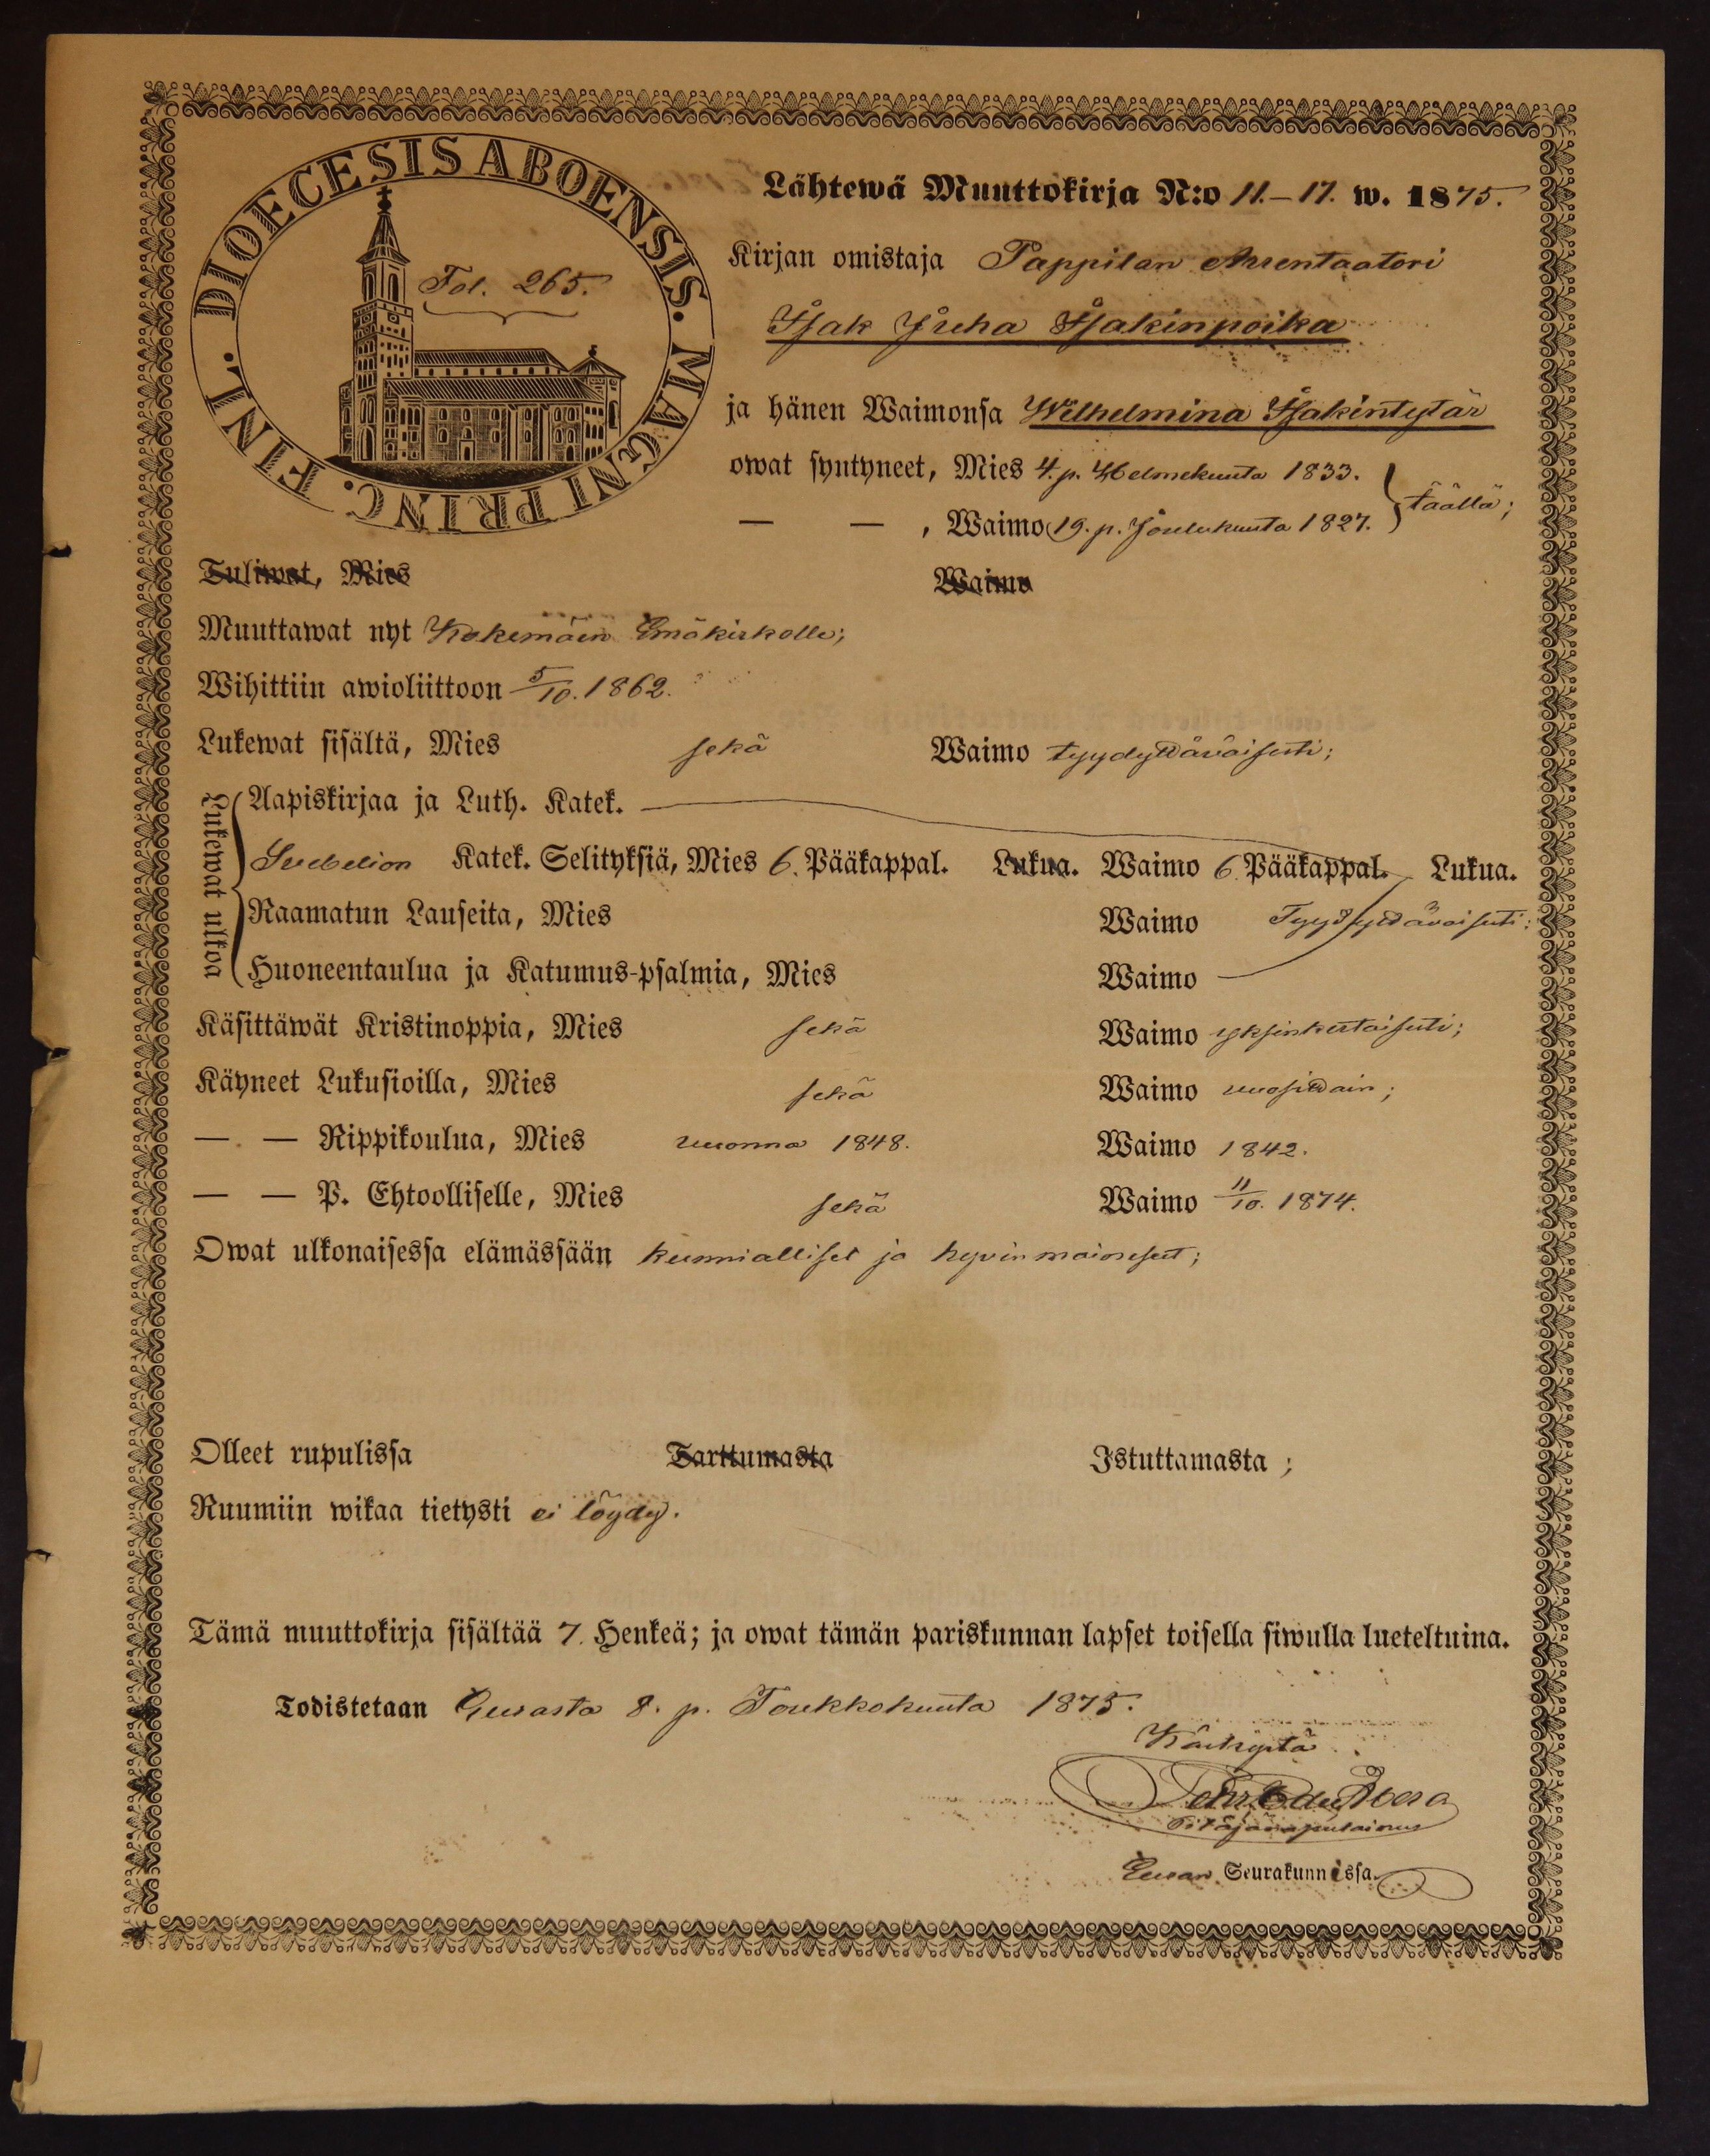 DIOECESIS ABOENSIS. MAGNI PRINC. FINL.
Fol. 265.
Lähtewä Muuttokirja N:o 11.–17. w. 1875.
Kirjan omistaja Pappilan Arrentaatori
Isak Juha Isakinpoika
ja hänen Waimonsa Wilhelmina Isakintytär
owat syntyneet, Mies 4. p. Helmekuuta 1833.
— — , Waimo 19. p. Joulukuuta 1827. täällä;
Tuliwat, Mies Waimo
Muuttawat nyt Kokemäen Emäkirkolle;
Wihittiin awioliittoon 5/10. 1862.
Lukewat sisältä, Mies sekä Waimo tyydyttäväisesti;
Lukewat ulkoa
Aapiskirjaa ja Luth. Katek.
Svebelion Katek. Selityksiä, Mies 6. Pääkappal. Lukua. Waimo 6 Pääkappal. Lukua.
Raamatun Lauseita, Mies Waimo Tyydyttäväisesti;
Huoneentaulua ja Katumus-psalmia, Mies Waimo
Käsittäwät Kristinoppia, Mies sekä Waimo yksinkertaisesti;
Käyneet Lukusioilla, Mies sekä Waimo vuosittain;
— — Rippikoulua, Mies vuonna 1848. Waimo 1842.
— — P. Ehtoolliselle, Mies sekä Waimo 11/10. 1874.
Owat ulkonaisessa elämässään kunnialliset ja hyvinmaineset;
Olleet rupulissa Tarttumasta Istuttamasta ;
Ruumiin wikaa tietysti ei löydy.
Tämä muuttokirja sisältää 7. Henkeä; ja owat tämän pariskunnan lapset toisella siwulla lueteltuina.
Todistetaan Eurasta 8. p. Toukkokuuta 1875.
Käskystä
Pitäjänapulainen
Euran Seurakunnassa.